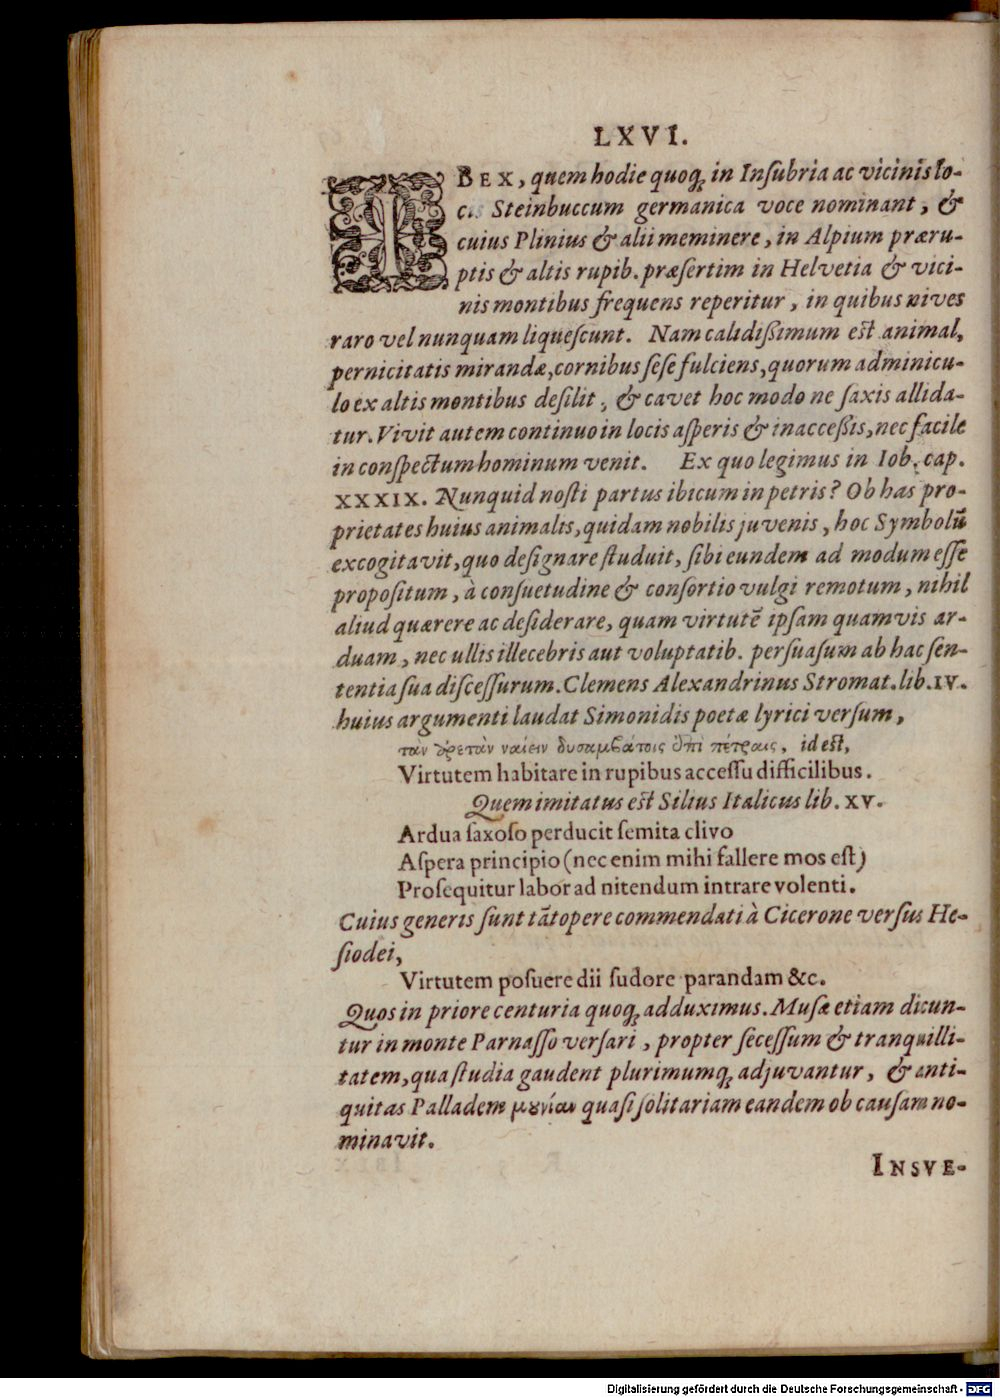 LXVI.
IBEX, quem hodie quoq; in Insubria ac vicinis lo-
cis Steinbuccum germanica voce nominant, &
cuius Plinius & alii meminere, in Alpium præru-
ptis & altis rupib. præsertim in Helvetia & vici-
nis montibus frequens reperitur, in quibus nives
raro vel nunquam liquescunt. Nam calidißimum est animal,
pernicitatis mirandæ, cornibus sese fulciens, quorum adminicu-
lo ex altis montibus desilit, & cavet hoc modo ne saxis allida-
tur. Vivit autem continuo in locis asperis & inacceßis, nec facile
in conspectum hominum venit. Ex quo legimus in Iob. cap.
XXXIX. Nunquid nosti partus ibicum in petris? Ob has pro-
prietates huius animalis, quidam nobilis juvenis, hoc Symbolū
excogitavit, quo designare studuit, sibi eundem ad modum esse
propositum, à consuetudine & consortio vulgi remotum, nihil
aliud quærere ac desiderare, quam virtutē ipsam quamvis ar-
duam, nec ullis illecebris aut voluptatib. persuasum ab hac sen-
tentia sua discessurum. Clemens Alexandrinus Stromat. lib. IV.
huius argumenti laudat Simonidis poetæ lyrici versum,
ταν ἀρετὰν ναίειν δυσαμβάτοις ἐπὶ πέτραις, id est,
Virtutem habitare in rupibus accessu difficilibus.
Quem imitatus est Silius Italicus lib. XV.
Ardua saxoso perducit semita clivo
Aspera principio (nec enim mihi fallere mos est)
Prosequitur labor ad nitendum intrare volenti.
Cuius generis sunt tātopere commendati à Cicerone versus He-
siodei,
Virtutem posuere dii sudore parandam &c.
Quos in priore centuria quoq; adduximus. Musæ etiam dicun-
tur in monte Parnasso versari, propter secessum & tranquilli-
tatem, qua studia gaudent plurimumq; adjuvantur, & anti-
quitas Palladem μουνίαν quasi solitariam eandem ob causam no-
minavit.
INSVE-
Digitalisierung gefördert durch die Deutsche Forschungsgemeinschaft - DFG